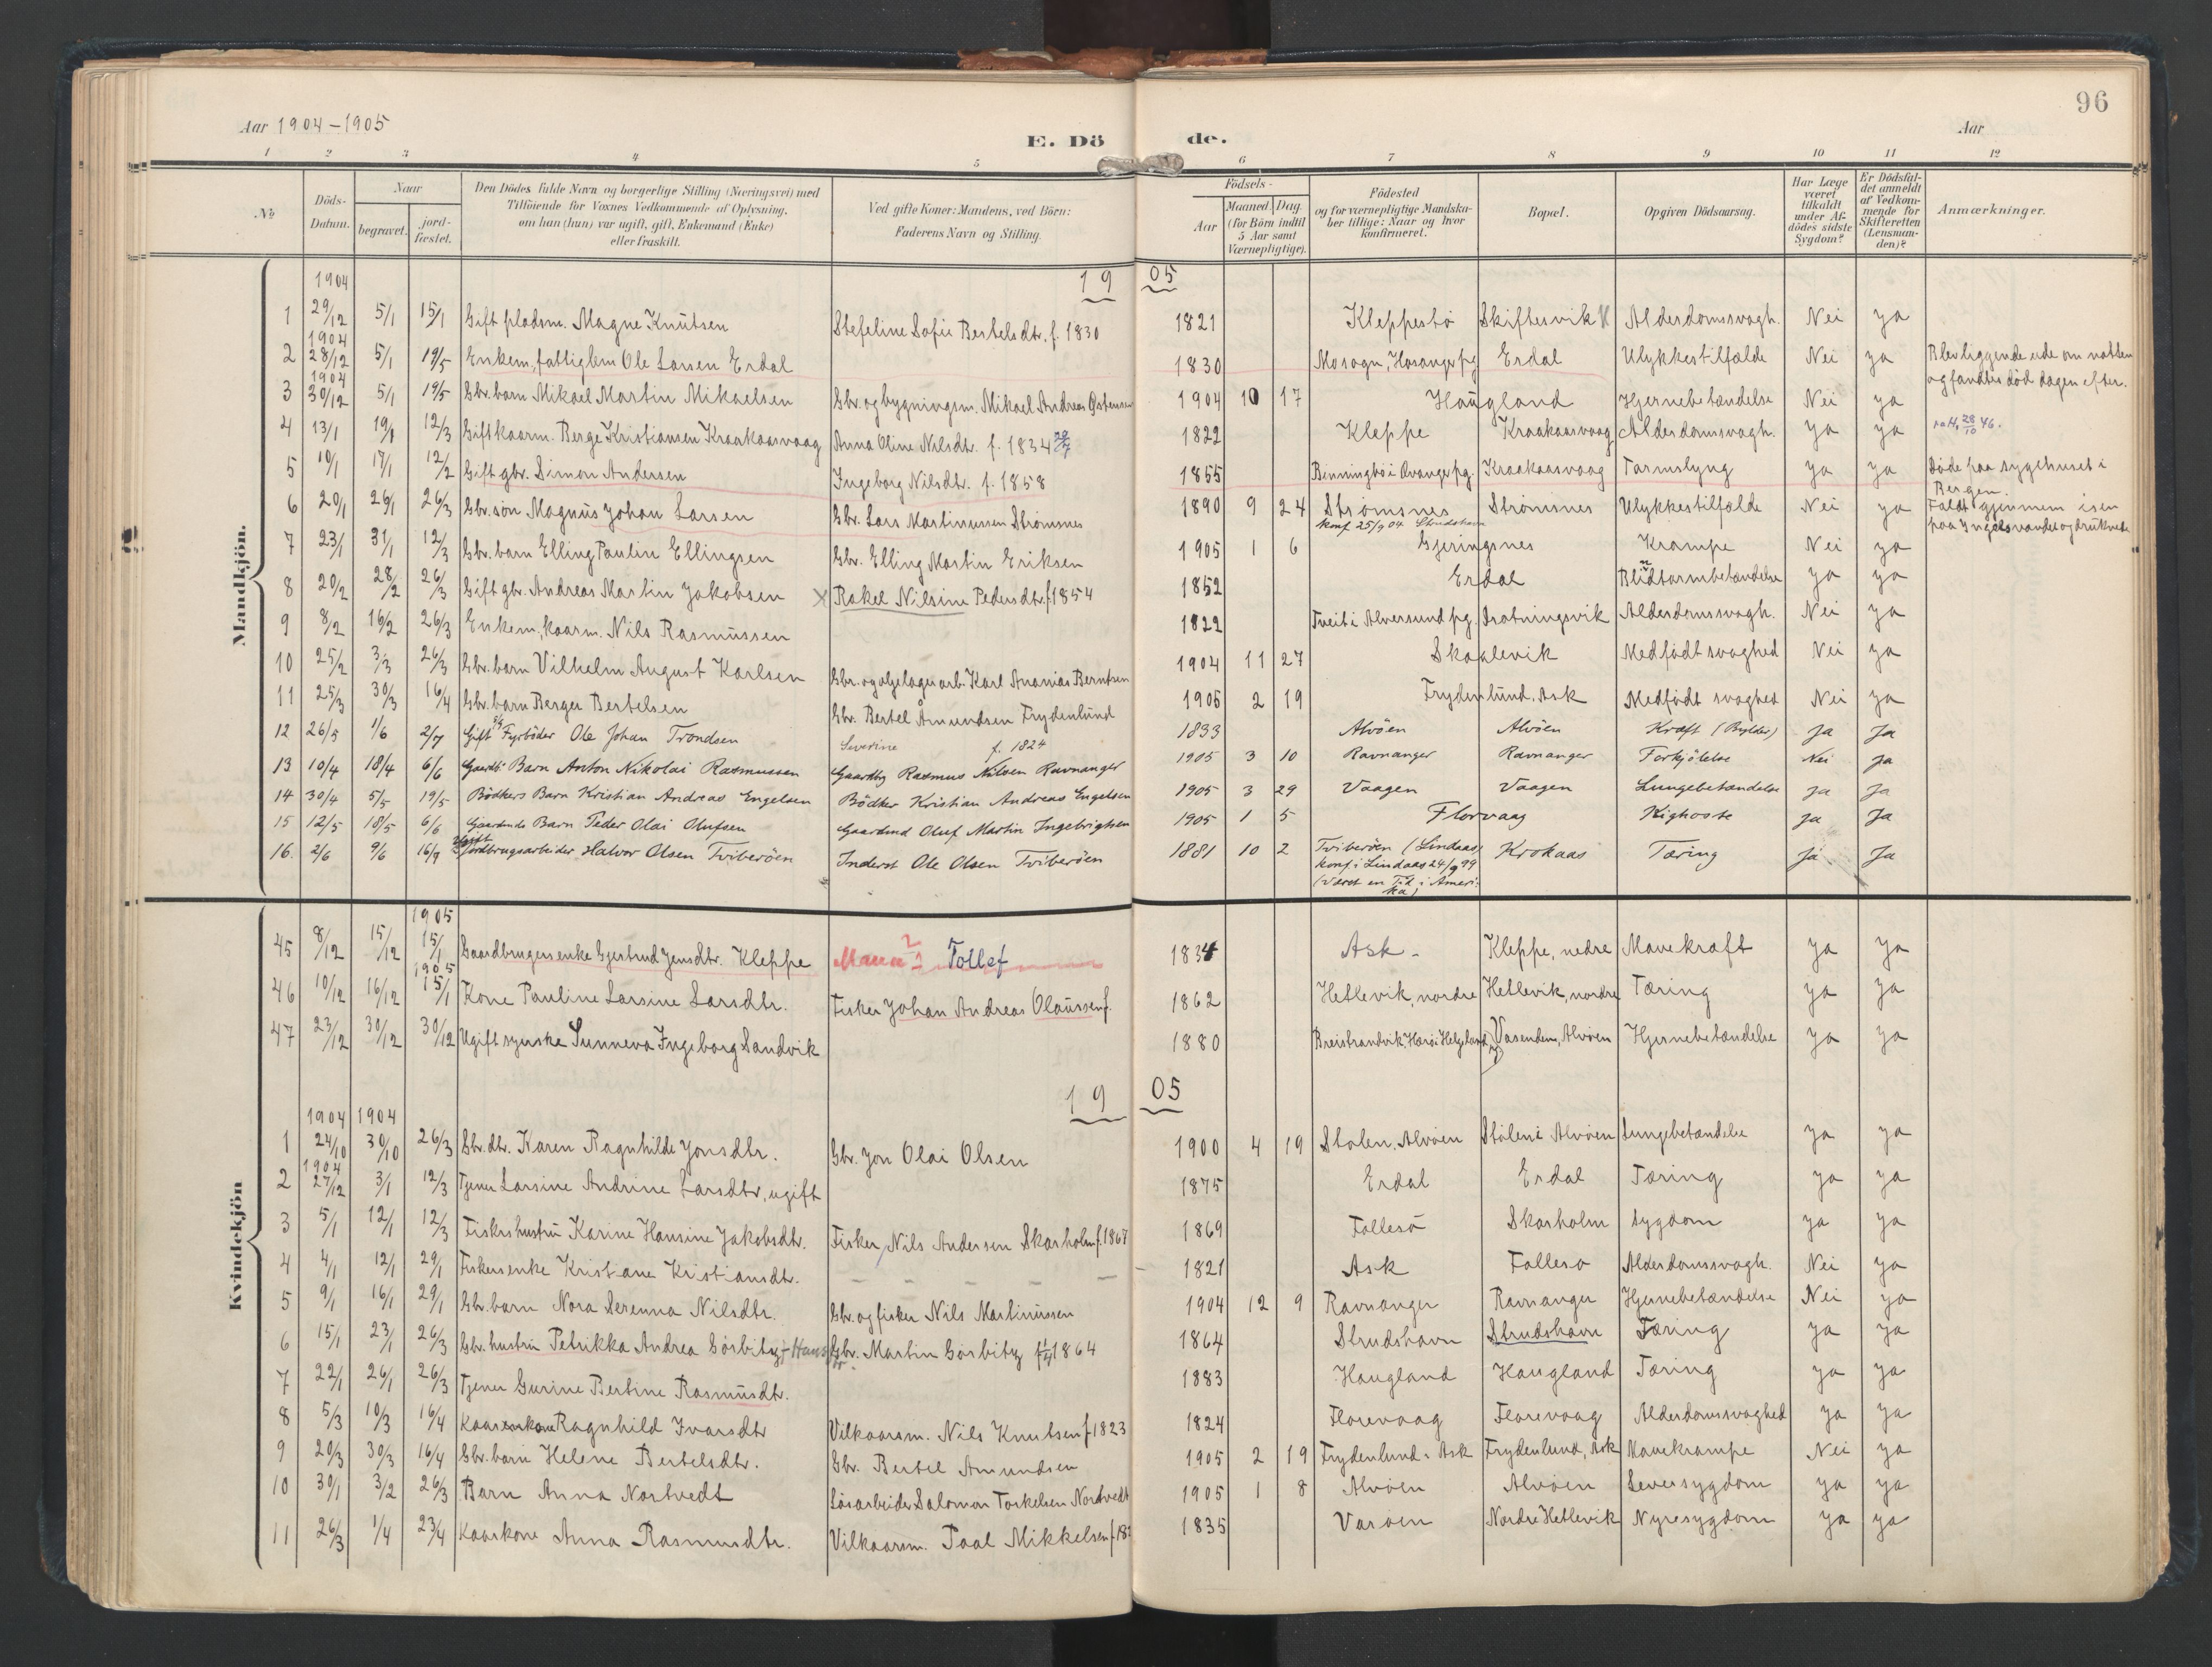 96
Aar 1904-1905
Aar
E. Dö de.
1 2 3 4 5 6 7 8 9 10 11 12
No
Döds-Datum.
Naar begravet. jordfæstet.
Den Dödes fulde Navn og borgerlige Stilling (Næringsvei) med Tilföiende for Voxnes Vedkommende af Oplysning, om han (hun) var ugift, gift, Enkemand (Enke) eller fraskilt.
Ved gifte Koner: Mandens, ved Börn: Faderens Navn og Stilling.
Födsels- Aar Maaned. Dag. (for Börn indtil 5 Aar samt Værnepligtige).
Födested og for værnepligtige Mandskaber tillige: Naar og hvor konfirmeret.
Bopæl.
Opgiven Dödsaarsag.
Har Læge været tilkaldt under Afdödes sidste Sygdom?
Er Dödsfaldet anmeldt af Vedkommende for Skifteretten (Lensmanden)?
Anmærkninger.
Mandkjön.
1905
1 1904 29/12 5/1 15/1 Gift pladsm. Magne Knutsen Stefeline Sofie Bertelsdtr. f. 1830 1821 Kleppestö Skiftesvik Alderdomssvagh. Nei ja
2 1904 28/12 5/1 19/5 Enkem., fattiglem Ole Larsen Erdal 1830 Mosogn, Hosanger pg Erdal Ulykkestilfælde Nei ja Blev liggende ude om natten og fandtes död dagen efter.
3 1904 30/12 5/1 19/5 Gbr. barn Mikael Martin Mikaelsen Gbr. og bygningsm. Mikael Andreas Østensen 1904 10 17 Haugland Hjernebetændelse Nei ja
4 13/1 19/1 12/3 Gift kaarm. Berge Kristiansen Kraakaasvaag Anna Oline Nilsdtr. f. 1834 1822 Kleppe Kraakaasvaag Alderdomssvagh. ja ja 28/10 46.
5 10/1 17/1 12/2 Gift gbr. Simon Andersen Ingeborg Nilsdtr. f. 1858 1855 Binningbö i Evanger pg. Kraakaasvaag Tarmslyng ja ja Döde paa sygehuset i Bergen.
6 20/1 26/1 26/3 Gbr. sön Magnus Johan Larsen Gbr. Lars Martinussen Strømsnes 1890 9 24 Strømsnes konf 25/9 04 Strudshavn Strömsnes Ulykkestilfælde Nei ja Faldt gjennem isen paa Ingelsvandet og druknede
7 23/1 31/1 12/3 Gbr. barn Elling Paulin Ellingsen Gbr. Elling Martin Eriksen 1905 1 6 Gjeringsnes Krampe Nei ja
8 20/2 28/2 26/3 Gift gbr. Andreas Martin Jakobsen Rakel Nilsine Pedersdtr. f. 1854 1852 Erdal Blindtarmbetændelse ja ja
9 8/2 16/2 26/3 Enkem., kaarm. Nils Rasmussen 1822 Tveit i Alversund pg. Drotningsvik Alderdomssvagh. Nei ja
10 25/2 3/3 26/3 Gbr. barn Vilhelm August Karlsen Gbr. og oljelager arb. Karl Ananias Berntsen 1904 11 27 Skaalevik Medfödt svaghed Nei ja
11 25/3 30/3 16/4 Gbr. barn Berger Bertelsen Gbr. Bertel Amundsen Frydenlund 1905 2 19 Frydenlund. Ask Medfödt svaghed Nei ja
12 26/5 1/6 2/7 Gift Fyrböder Ole Johan Trondsen Severine f. 1824 1833 Alvöen Alvöen Kræft (Bylder) Ja Ja
13 10/4 18/4 6/6 Gaardb. Barn Anton Nikolai Rasmussen Gaardbg Rasmus Nilsen Ravnanger 1905 3 10 Ravnanger Ravnanger Forkjölelse Nei Ja
14 30/4 5/5 19/5 Bödkers Barn Kristian Andreas Engelsen Bödker Kristian Andreas Engelsen 1905 3 29 Vaagen Vaagen Lungebetændelse Ja Ja
15 12/5 18/5 6/6 Gaardmds Barn Peder Olai Olufsen Gaardmd Oluf Martin Ingebrigtsen 1905 1 5 Florvaag Kighoste Ja Ja
16. 2/6 9/6 16/9 Ugift Jordbrugsarbeider Halvor Olsen Tviberöen Inderst Ole Olsen Tviberöen 1881 10 2 Tviberöen (Lindaas) konf i Lindaas 24/9 99 (Været en Tid i Amerika) Krokaas Tæring Ja Ja
Kvindekjön
45 8/12 15/12 1905 15/1 Gaardbrugers enke Gjertrud Jensdtr. Kleppe Mann? Tollef 1834 Ask - Kleppe, nedre Mavekræft ja ja
46 10/12 16/12 1905 15/1 Kone Pauline Larsine Larsdtr. Fisker Johan Andreas Olaussen f. 1862 Hetlevik, nordre Hetlevik, nordre Tæring ja ja
47 23/12 30/12 30/12 Ugift syerske Sunneva Ingeborg Sandvik 1880 Breistrandvik, Herö i Helgeland Vasenden, Alvöen Hjernebetændelse ja ja
1905
1 1904 24/10 1904 30/10 26/3 Gbr. dtr. Karen Ragnhilde Jonsdtr. Gbr. Jon Olai Olsen 1900 4 19 Stölen, Alvöen Stölen i Alvöen Lungebetændelse ja ja
2 1904 27/12 3/1 12/3 Tjener Larsine Andrine Larsdtr, ugift 1875 Erdal Erdal Tæring ja ja
3 5/1 12/1 12/3 Fiskershustru Karine Hansine Jakobsdtr. Fisker Nils Andersen Skarholm f. 1867 1869 Follesö Skarholm sygdom ja ja
4 4/1 12/1 29/1 Fiskersenke Kristiane Kristiansdtr. - - - - - 1821 Ask Follesø Alderdomssvagh. Nei ja
5 9/1 16/1 29/1 Gbr. barn Nora Serenna Nilsdtr. Gbr. og fisker Nils Martinussen 1904 12 9 Ravnanger Ravnanger Hjernebetændelse Nei ja
6 15/1 23/1 26/3 Gbr. hustru Petrikka Andrea Görbitz f Hansdtr. Gbr. Martin Görbitz f 1/4 1864 1864 Strudshavn Strudshavn Tæring ja ja
7 22/1 26/1 26/3 Tjener Gurine Bertine Rasmusdtr. 1883 Haugland Haugland Tæring ja ja
8 5/3 10/3 16/4 Kaarenkone Ragnhild Ivarsdtr Vilkaarsm. Nils Knutsen f. 1823 1824 Florevaag Florevaag Alderdomssvaghed ja ja
9 20/3 30/3 16/4 Gbr. barn Helene Bertelsdtr. Gbr. Bertel Amundsen 1905 2 19 Frydenlund. Ask Frydenlund, Ask Mavekrampe Nei ja
10 30/1 3/2 26/3 Barn Anna Nortvedt Lösarbeider Salomon Torkelsen Nordtvedt 1905 1 8 Alvöen Alvöen Leversygdom ja ja
11 26/3 1/4 23/4 Kaarkone Anna Rasmusdtr. Vilkaarsm. Paal Mikkelsen f. 18 1835 Varöen Nordre Hetlevik Nyresygdom ja ja